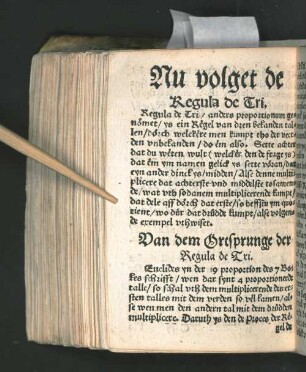 Nu volget de
Regula de Tri.
Regula de Tri / anders proportionum ge
nömet / ys ein Regel van dren bekanden tal
len / dörch welckere men kumpt tho de verde
den vnbekanden / do ẽn also. Sette achter
dat du weten wult (welcker den de frage ys)
dat ẽn yn namen gelick ys thor vören / dat
eyn ander dinck ys / midden / Alß denne multi
plicere dat achterste vnd middelste tosamen
de, wat vth sodanem multiplicerende kumpt /
dat dele aff dörch dat erste / so besstu ym quo
tient / wo dür dat drüdde kumpt / alse volgen
de exempel vthwiset.
Van dem Orsprunge der
Regula de Tri.
Euclides yn der 19 proportion des 7 Bo
kes schrifft / wen dar synt 4 proportionerde
talle / so schal vth dem multiplicerende des er
sten talles mit dem verden so vel kamen / alse
wen men den andern tal mit dem düdden
multiplicere. Daruth ys den de Proces der Re
gel de